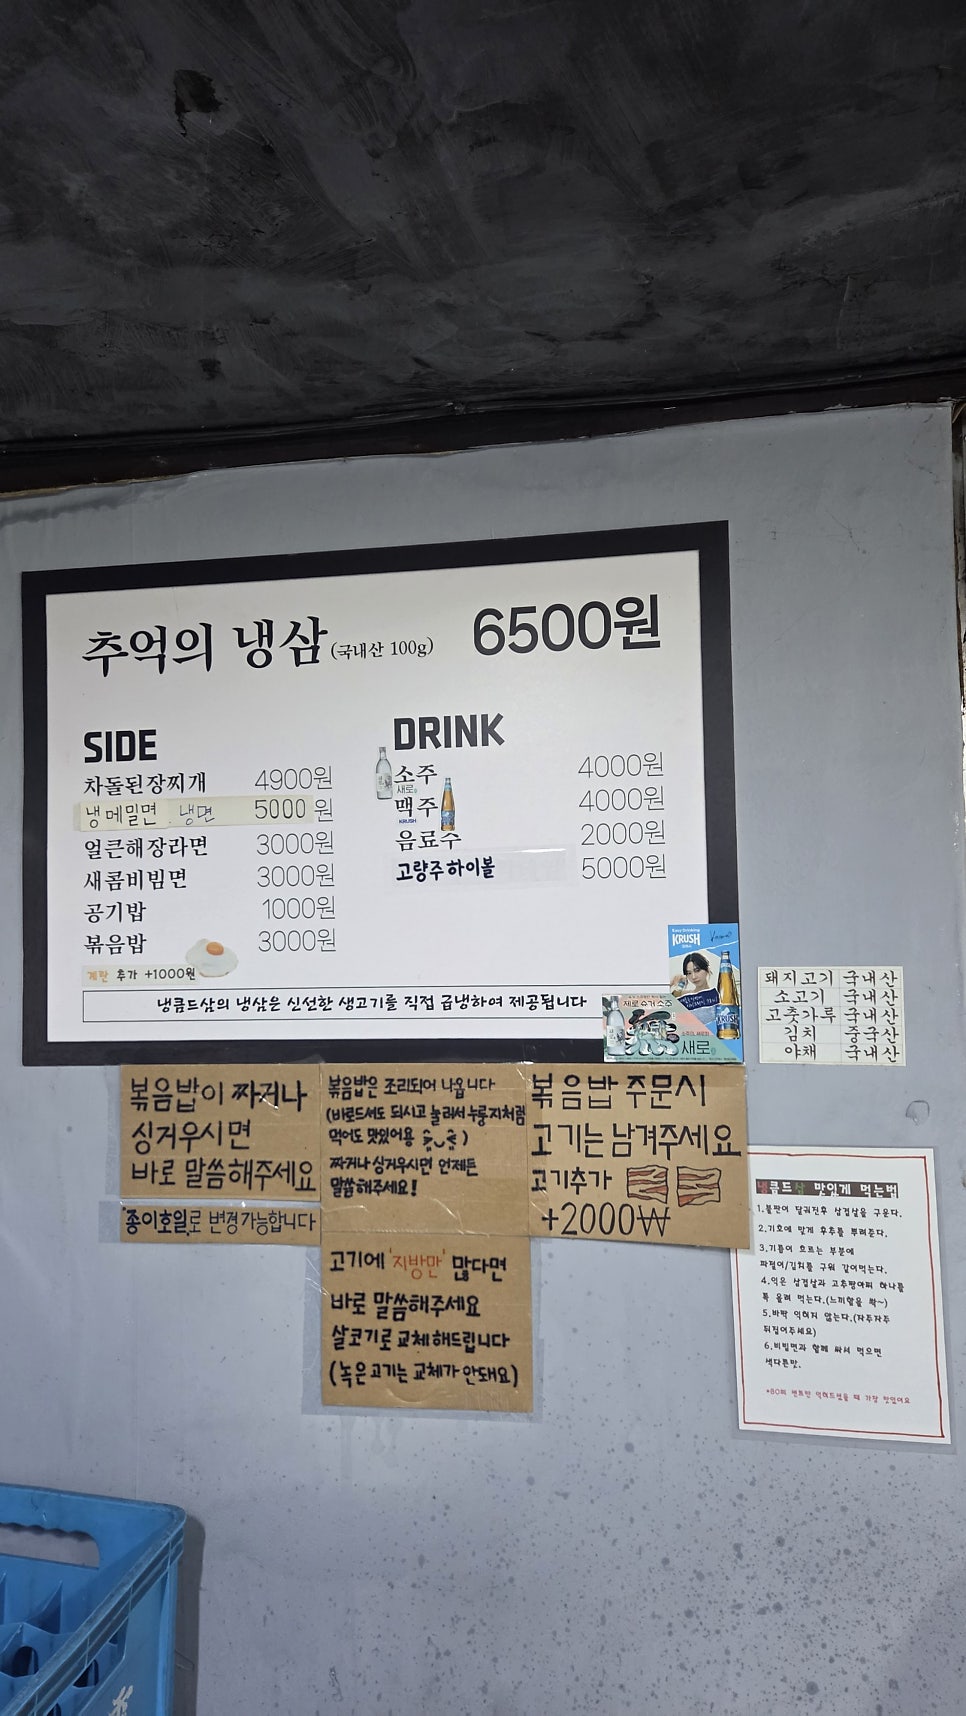 추억의 냉삼 (국내산 100g) 6500원
SIDE
차돌된장찌개 4900원
냉메밀면 . 냉면 5000원
얼큰해장라면 3000원
새콤비빔면 3000원
공기밥 1000원
볶음밥 3000원
계란 추가 +1000원
DRINK
소주 4000원
새로
맥주 4000원
KRUSH
음료수 2000원
고량주하이볼 5000원
냉큼드삼의 냉삼은 신선한 생고기를 직접 급냉하여 제공됩니다
Easy Drinking
KRUSH
KRUSH
제로 슈거 소주
새로
돼지고기 국내산
소고기 국내산
고춧가루 국내산
김치 중국산
야채 국내산
볶음밥이 짜거나
싱거우시면
바로 말씀해주세요
종이호일로 변경가능합니다
볶음밥은 조리되어 나옵니다
(바로드셔도 되시고 눌러서 누룽지처럼
먹어도 맛있어용)
짜거나 싱거우시면 언제든
말씀해주세요!
볶음밥 주문시
고기는 남겨주세요
고기추가
+2000₩
고기에 '지방만' 많다면
바로 말씀해주세요
살코기로 교체해드립니다
(녹은고기는 교체가 안돼요)
냉큼드삼 맛있게 먹는법
1.불판이 달궈진후 삼겹살을 구운다.
2.기호에 맞게 후추를 뿌려준다.
3.기름이 흐르는 부분에
파절이/김치를 구워 같이먹는다.
4.익은 삼겹살과 고추짱아찌 하나를
톡 올려 먹는다.(느끼함을 싹~)
5.바짝 익히지 않는다.(자주자주
뒤집어주세요)
6.비빔면과 함께 싸서 먹으면
색다른맛.
*80퍼 센트만 익혀드셨을 때 가장 맛있어요